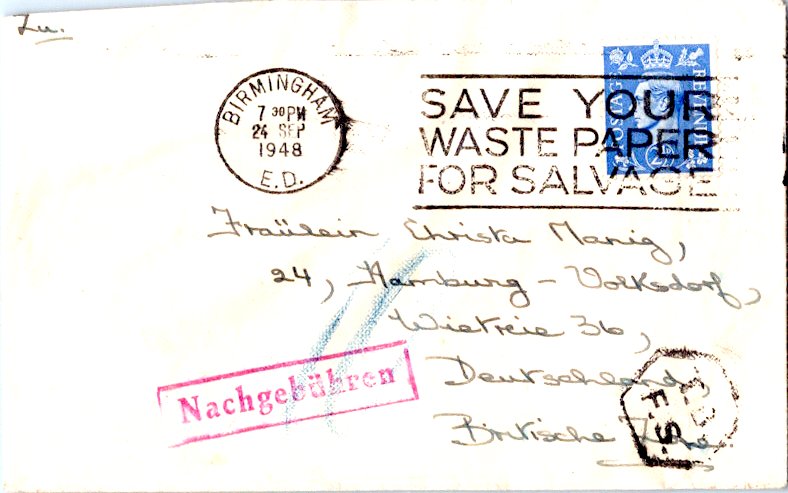 Zu.
BIRMINGHAM
7 30 PM
24 SEP
1948
E.D.
SAVE YOUR
WASTE PAPER
FOR SALVAGE
POSTAGE
REVENUE
2½
Fräulein Christa Manig,
24, Hamburg - Volksdorf,
Wietreie 36,
Deutschland,
Britische Zone
Nachgebühren
F.S.